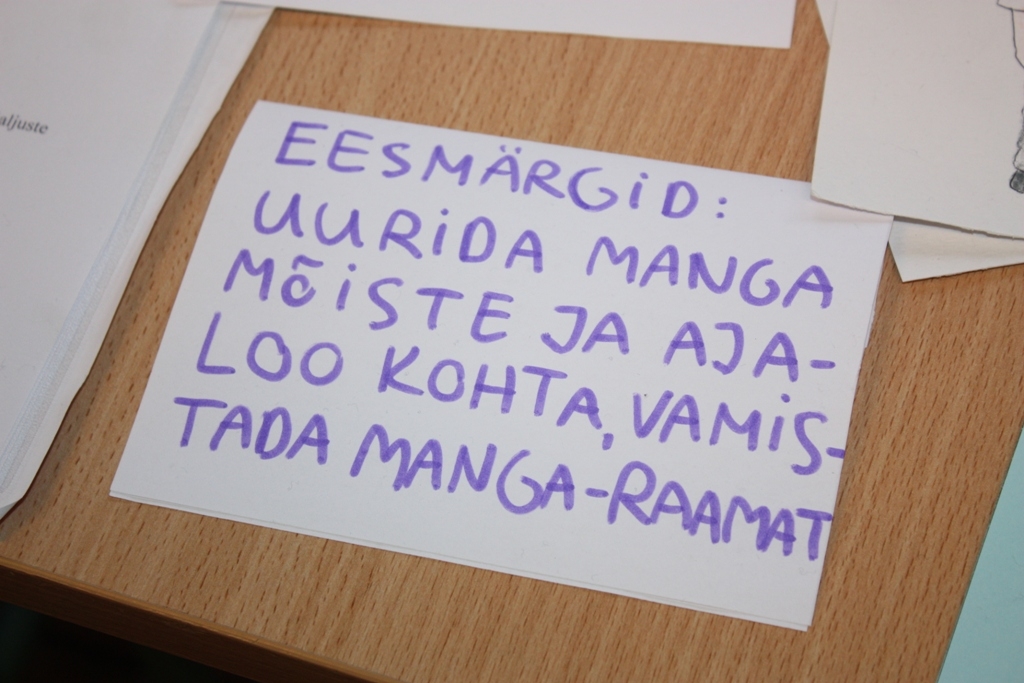 aljuste
EESMÄRGID:
UURIDA MANGA
MÕISTE JA AJA-
LOO KOHTA, VAMIS-
TADA MANGA-RAAMAT